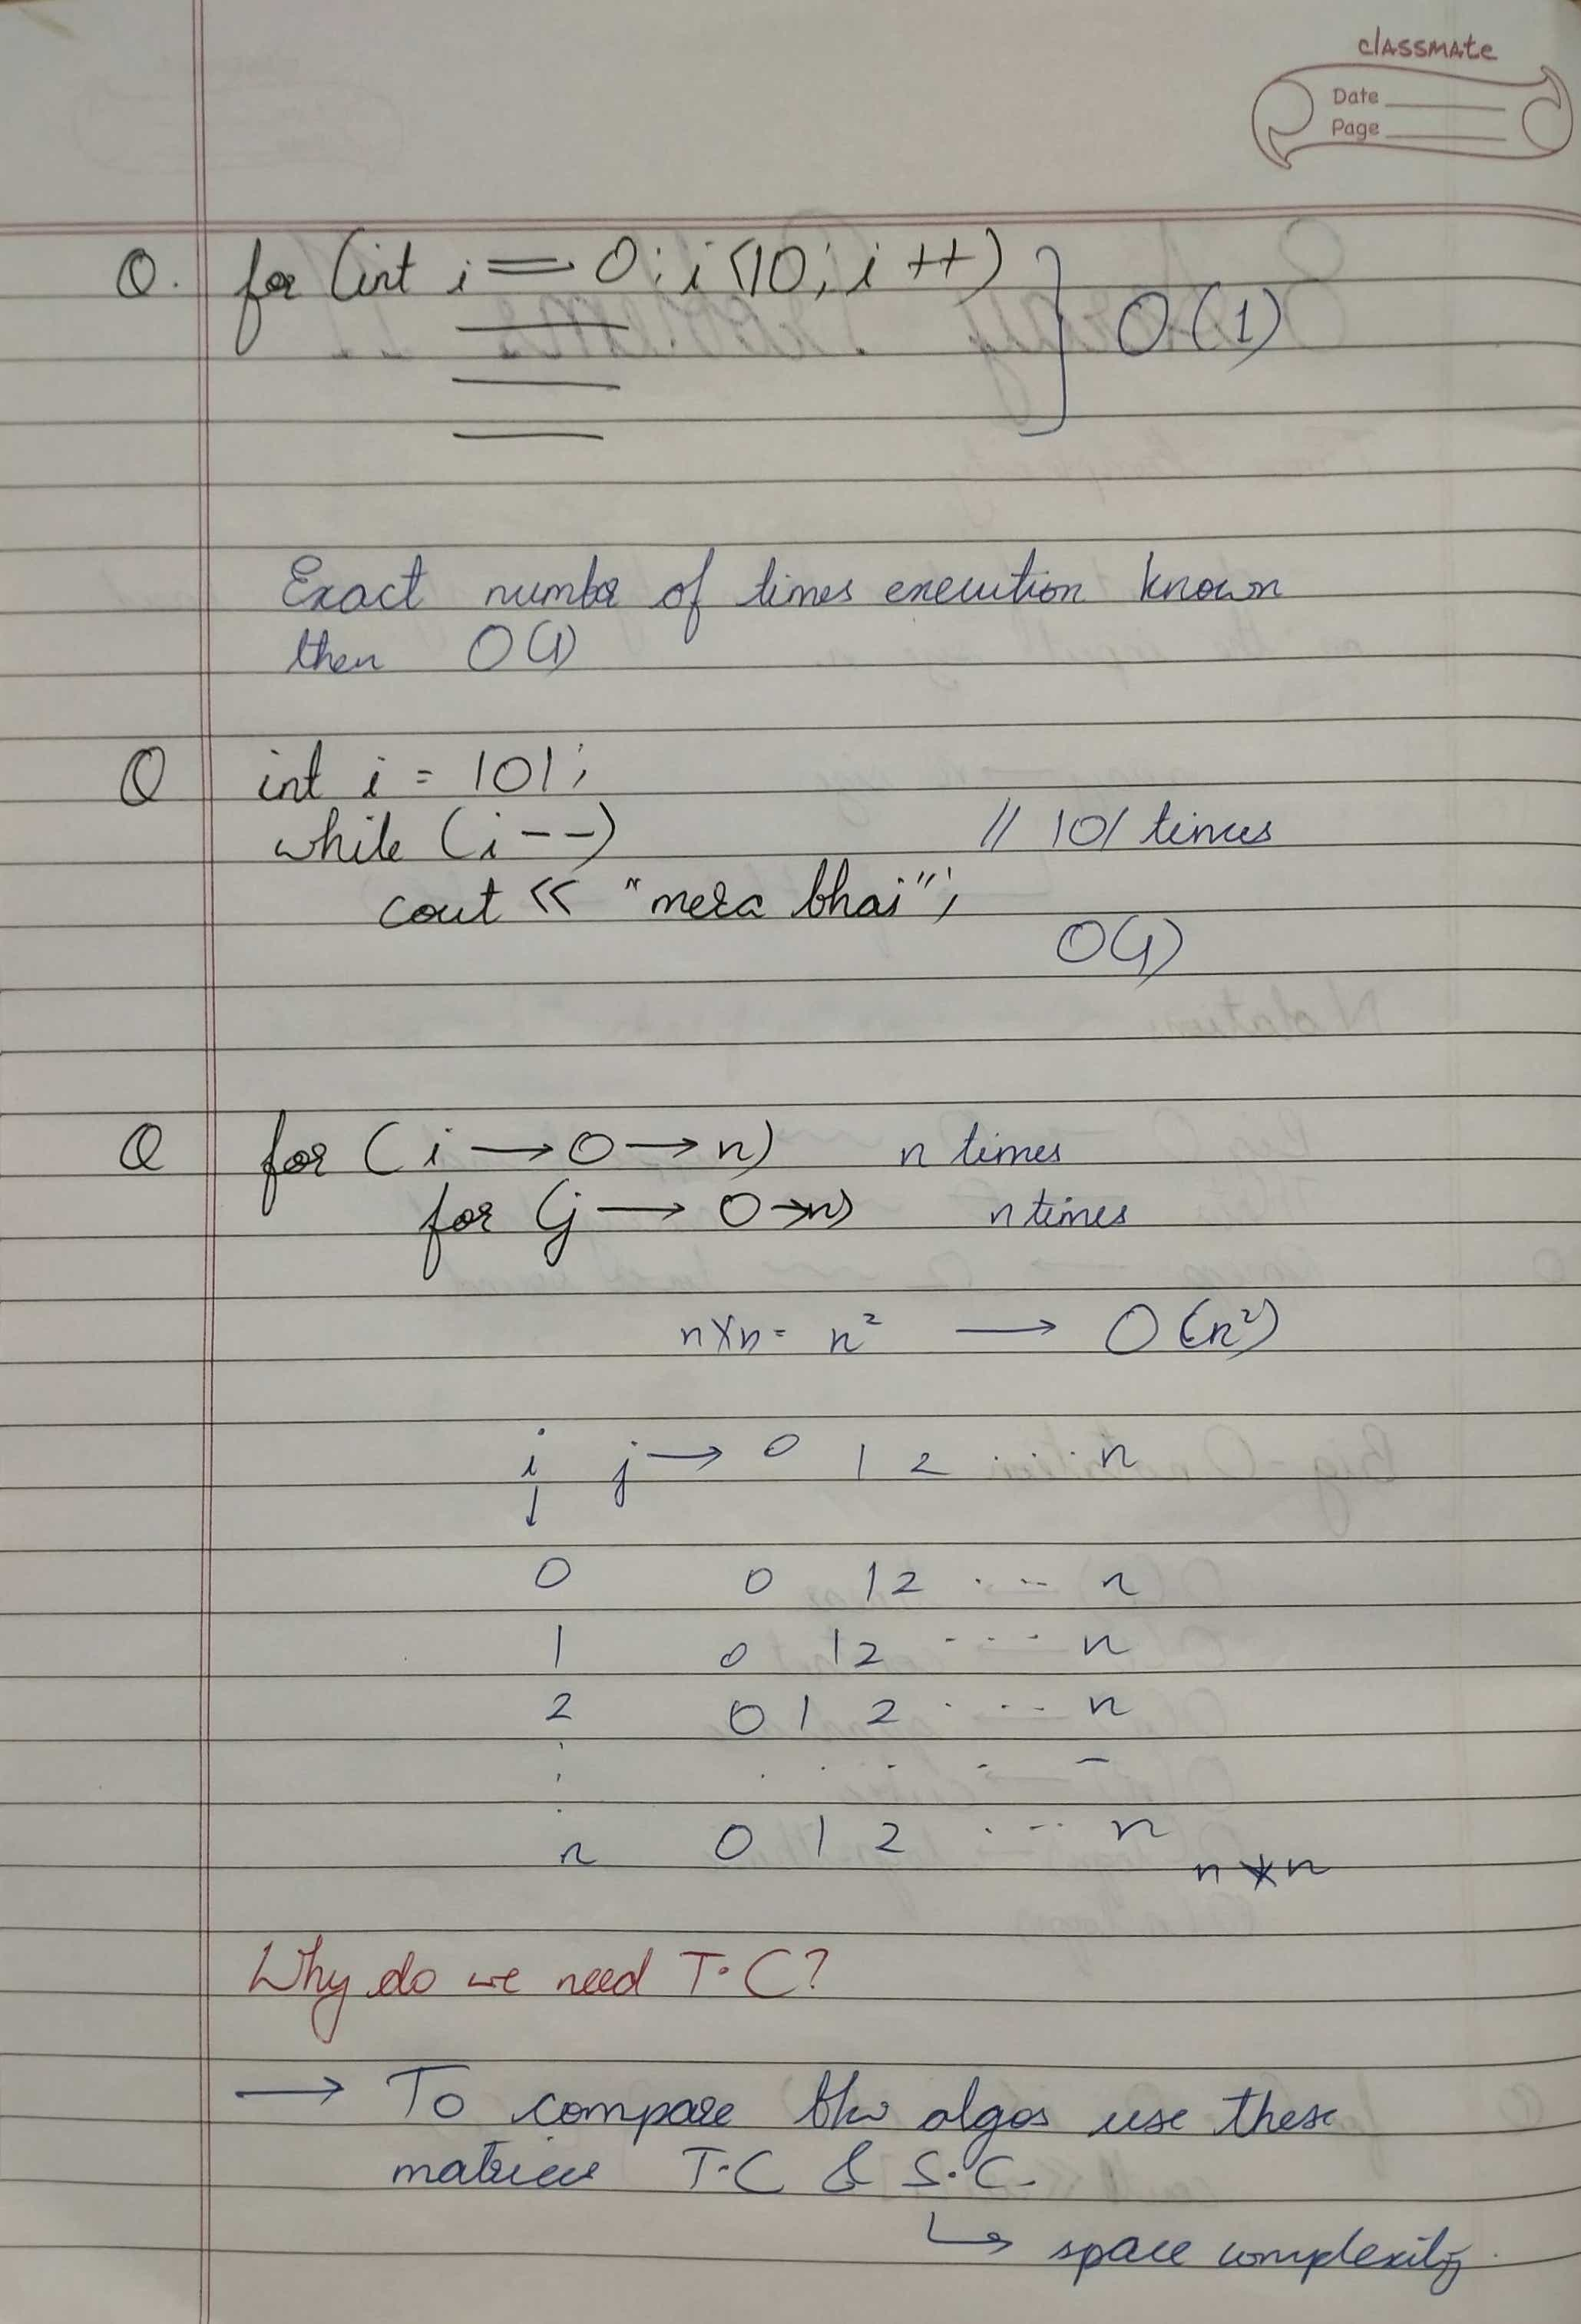 classmate
Date
Page
Q. for (int i = 0; i<10; i++)
O(1)
Exact number of times execution known
then O(1)
Q int i = 101;
while (i--) // 101 times
cout << "mera bhai";
O(1)
Q for (i → 0 → n) n times
for (j → 0 → n) n times
n×n = n² → O(n²)
i j → 0 1 2 ..... n
↓
0 0 1 2 ... n
1 0 1 2 .... n
2 0 1 2 .... n
n 0 1 2 .... n
n * n
Why do we need T.C?
→ To compare btw algos use these
matrices T.C & S.C.
↳ space complexity.